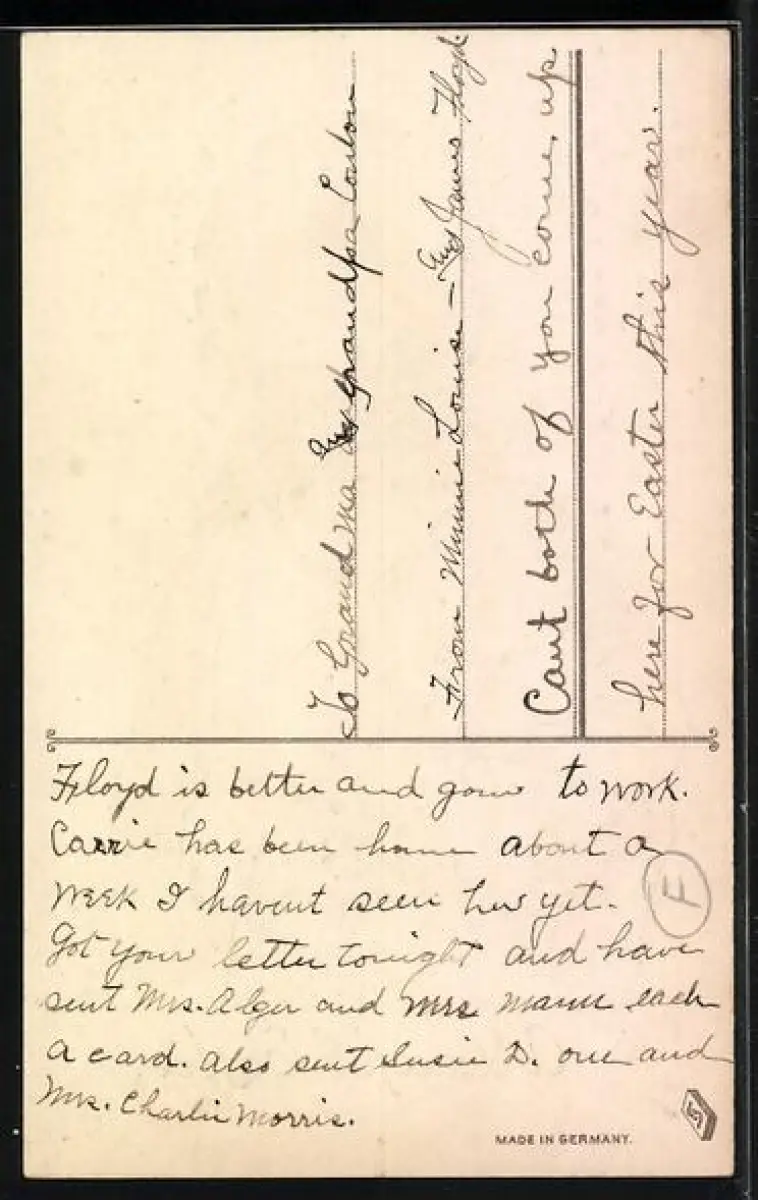 To Grandma and Grandpa
From Minnie Louise - and James Floyd
Cant both of you come up
here for Easter this year.
Floyd is better and gone to work.
Carrie has been home about a
week I havent seen her yet.
F
Got your letter tonight and have
sent Mrs. Alger and Mrs Mann each
a card. also sent Susie D. one and
Mrs. Charlie Morris.
MADE IN GERMANY.